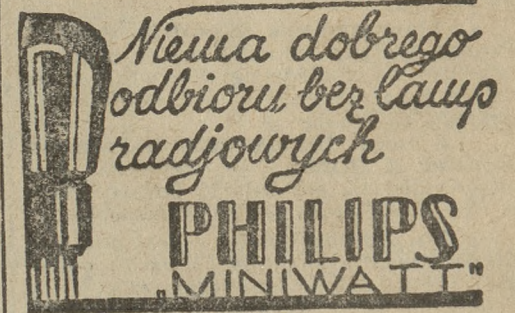 Niema dobrego
odbioru bez lamp
radjowych
PHILIPS
„MINIWATT"